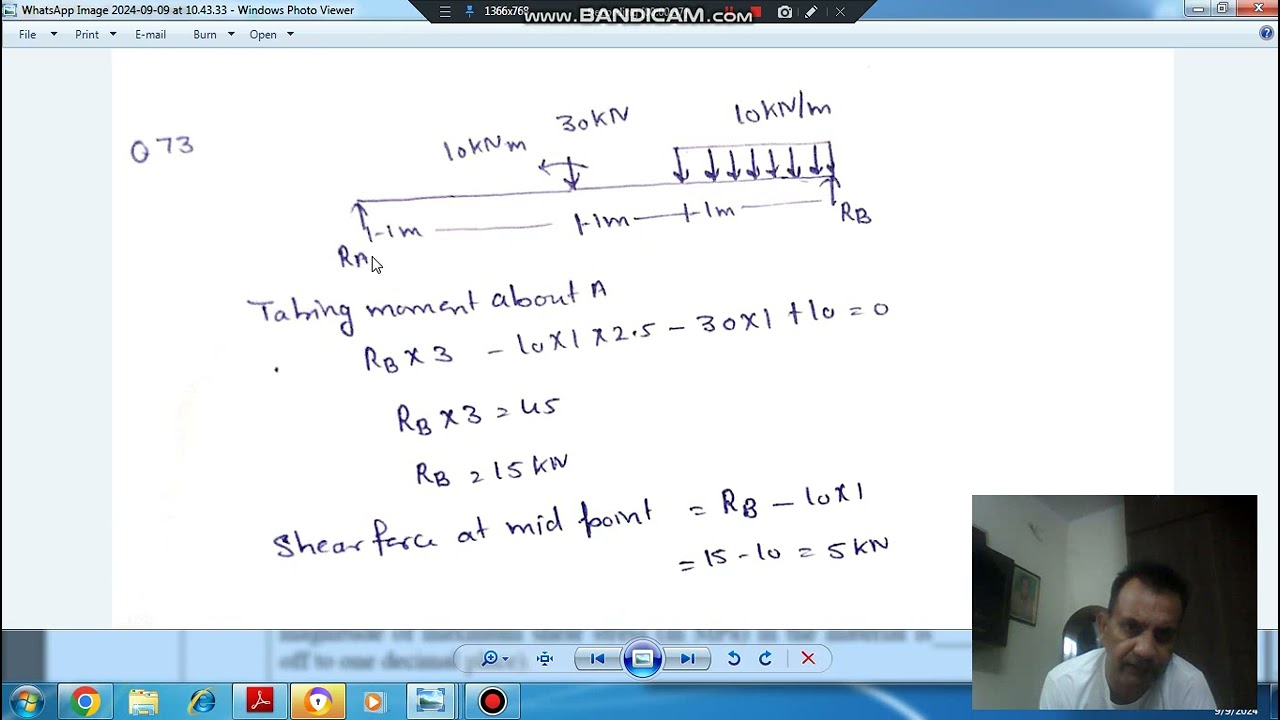 WhatsApp Image 2024-09-09 at 10.43.33 - Windows Photo Viewer
1366x768
www.BANDICAM.com
File Print E-mail Burn Open
Q 73
10kNm
30kN
10kN/m
1m
1m
1m
RA
RB
Taking moment about A
RB x 3 - 10x1 x 2.5 - 30x1 + 10 = 0
RB x 3 = 45
RB = 15 kN
Shear force at mid point = RB - 10x1
= 15 - 10 = 5 kN
off to one decimal
9/9/2024